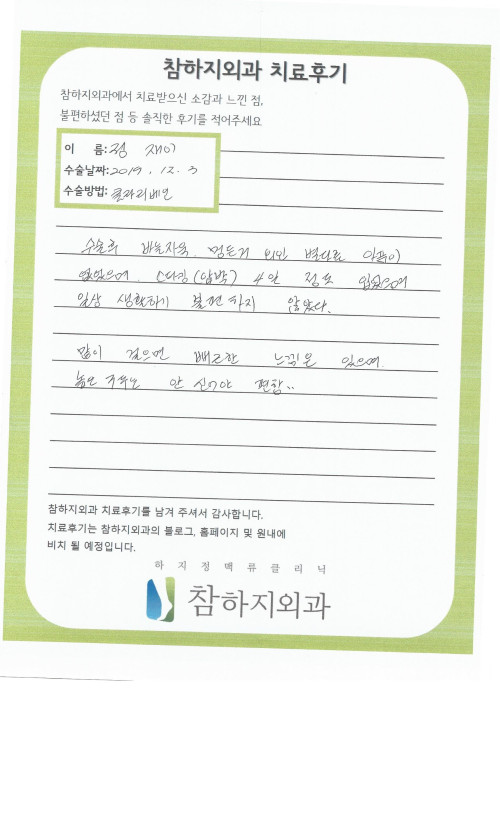 참하지외과 치료후기
참하지외과에서 치료받으신 소감과 느낀 점,
불편하셨던 점 등 솔직한 후기를 적어주세요
이 름: 정 재이
수술날짜: 2019. 12. 3
수술방법: 클라리베인
수술후 바늘자욱, 멍든거 외엔 별다른 아픔이
없었으며 스타킹(압박) 4일 정도 입었으며
일상 생활하기 불편하지 않았다.
많이 걸으면 뻐근한 느낌은 있으며
높은 구두는 안 신어야 편함..
참하지외과 치료후기를 남겨 주셔서 감사합니다.
치료후기는 참하지외과의 블로그, 홈페이지 및 원내에
비치 될 예정입니다.
하지정맥류클리닉
참하지외과